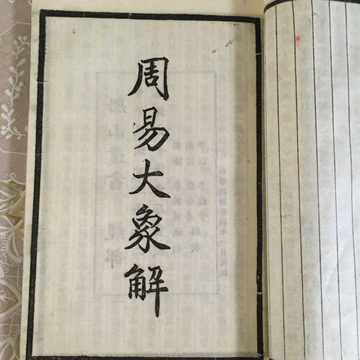 周易大象解